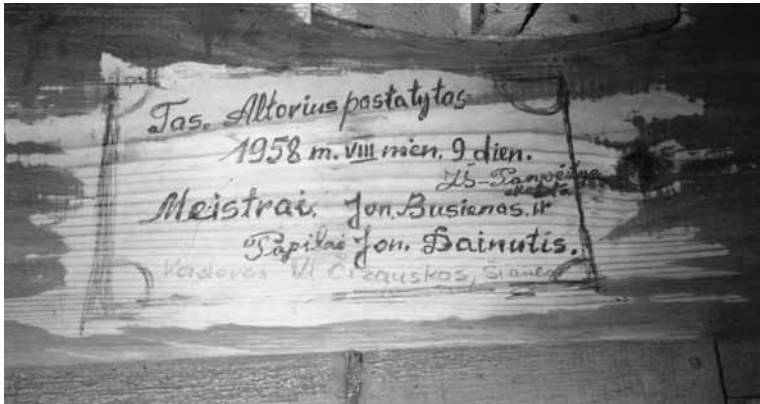 Tas. Altorius pastatytas
1958 m. VIII mėn. 9 dien.
Iš-Panevėžyo
Meistrai. Jon. Busienas. ir
Papilės Jon. Dainutis.
Vadovas Vl Čizauskas, Šiaulės